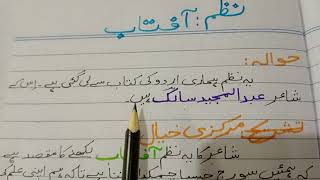 نظم: آفتاب
حوالہ:
یہ نظم ہماری اردو کی کتاب سے لی گئی ہے۔ اس کے
شاعر عبدالمجید سالک ہیں۔
تشریح: مرکزی خیال
شاعر کا یہ نظم آفتاب لکھنے کا مقصد ہے
کہ ہمیں سورج جیسا چمکدار بننا ہے تاکہ ہم اپنی علم کی